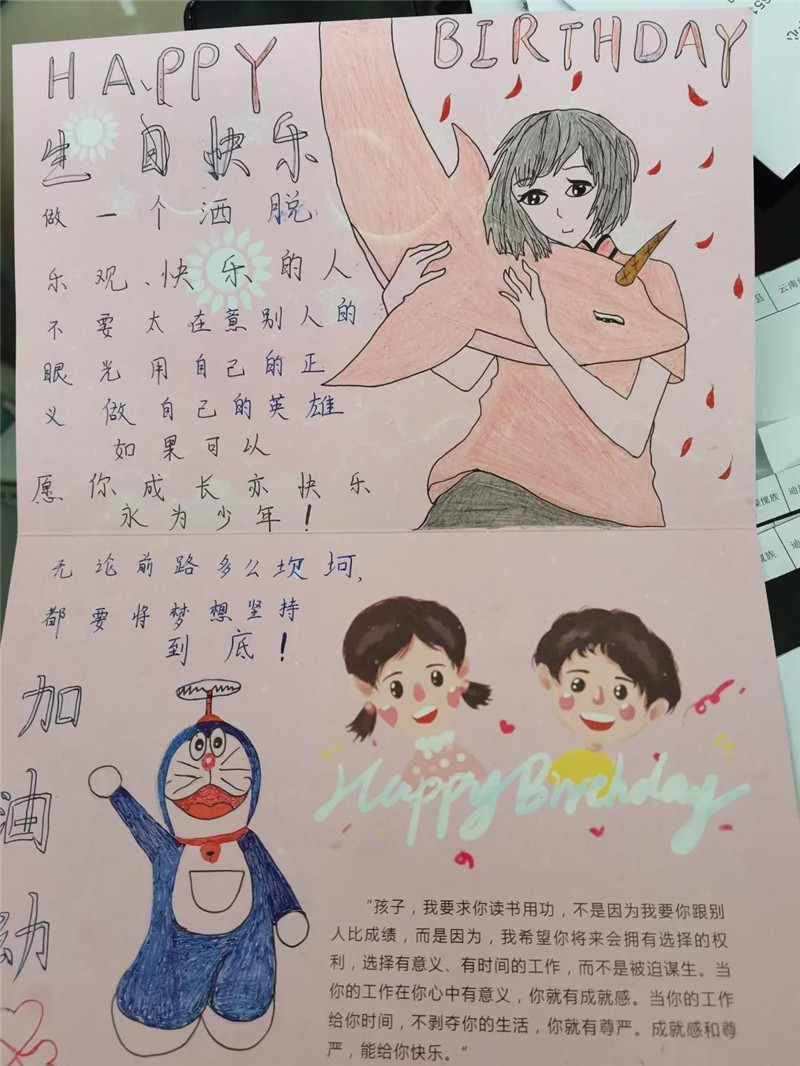 HAPPY BIRTHDAY
生日快乐
做一个洒脱
乐观、快乐的人
不要太在意别人的
眼光用自己的正
义做自己的英雄
如果可以
愿你成长亦快乐
永为少年！
无论前路多么坎坷，
都要将梦想坚持
到底！
加
油
幼
Happy Birthday
“孩子，我要求你读书用功，不是因为我要你跟别
人比成绩，而是因为，我希望你将来会拥有选择的权
利，选择有意义、有时间的工作，而不是被迫谋生。当
你的工作在你心中有意义，你就有成就感。当你的工作
给你时间，不剥夺你的生活，你就有尊严。成就感和尊
严，能给你快乐。”
县
云南
傈僳族
迪